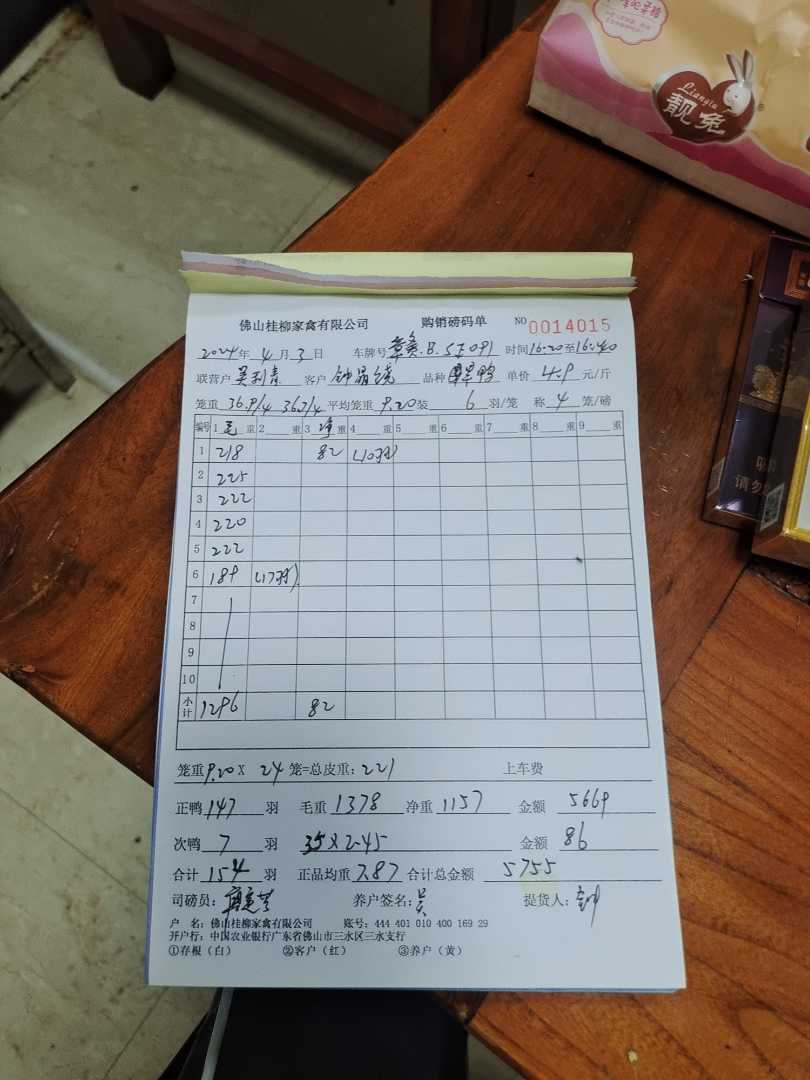 Liangtu
靓兔
佛山桂柳家禽有限公司 购销磅码单 NO 0014015
2024年 4月 3日 车牌号 B.5E091 时间16:20至16:40
联营户 吴利青 客户 品种 鸭 单价 4.9 元/斤
笼重 36.9/4 36.7/4 平均笼重 9.20 装 6 羽/笼 称 4 笼/磅
编号 1 毛 重 2 重 3 净 重 4 重 5 重 6 重 7 重 8 重 9 重
1 218 82 (10羽)
2 225
3 222
4 220
5 222
6 189 (17羽)
7
8
9
10
小计 1296 82
笼重9.20 X 24 笼=总皮重: 221 上车费
正鸭 147 羽 毛重 1378 净重 1157 金额 5669
次鸭 7 羽 35×2.45 金额 86
合计 154 羽 正品均重 7.87 合计总金额 5755
司磅员: 养户签名: 吴 提货人: 钟
户 名: 佛山桂柳家禽有限公司 账号: 444 401 010 400 169 29
开户行: 中国农业银行广东省佛山市三水区三水支行
①存根（白） ②客户（红） ③养户（黄）
请勿